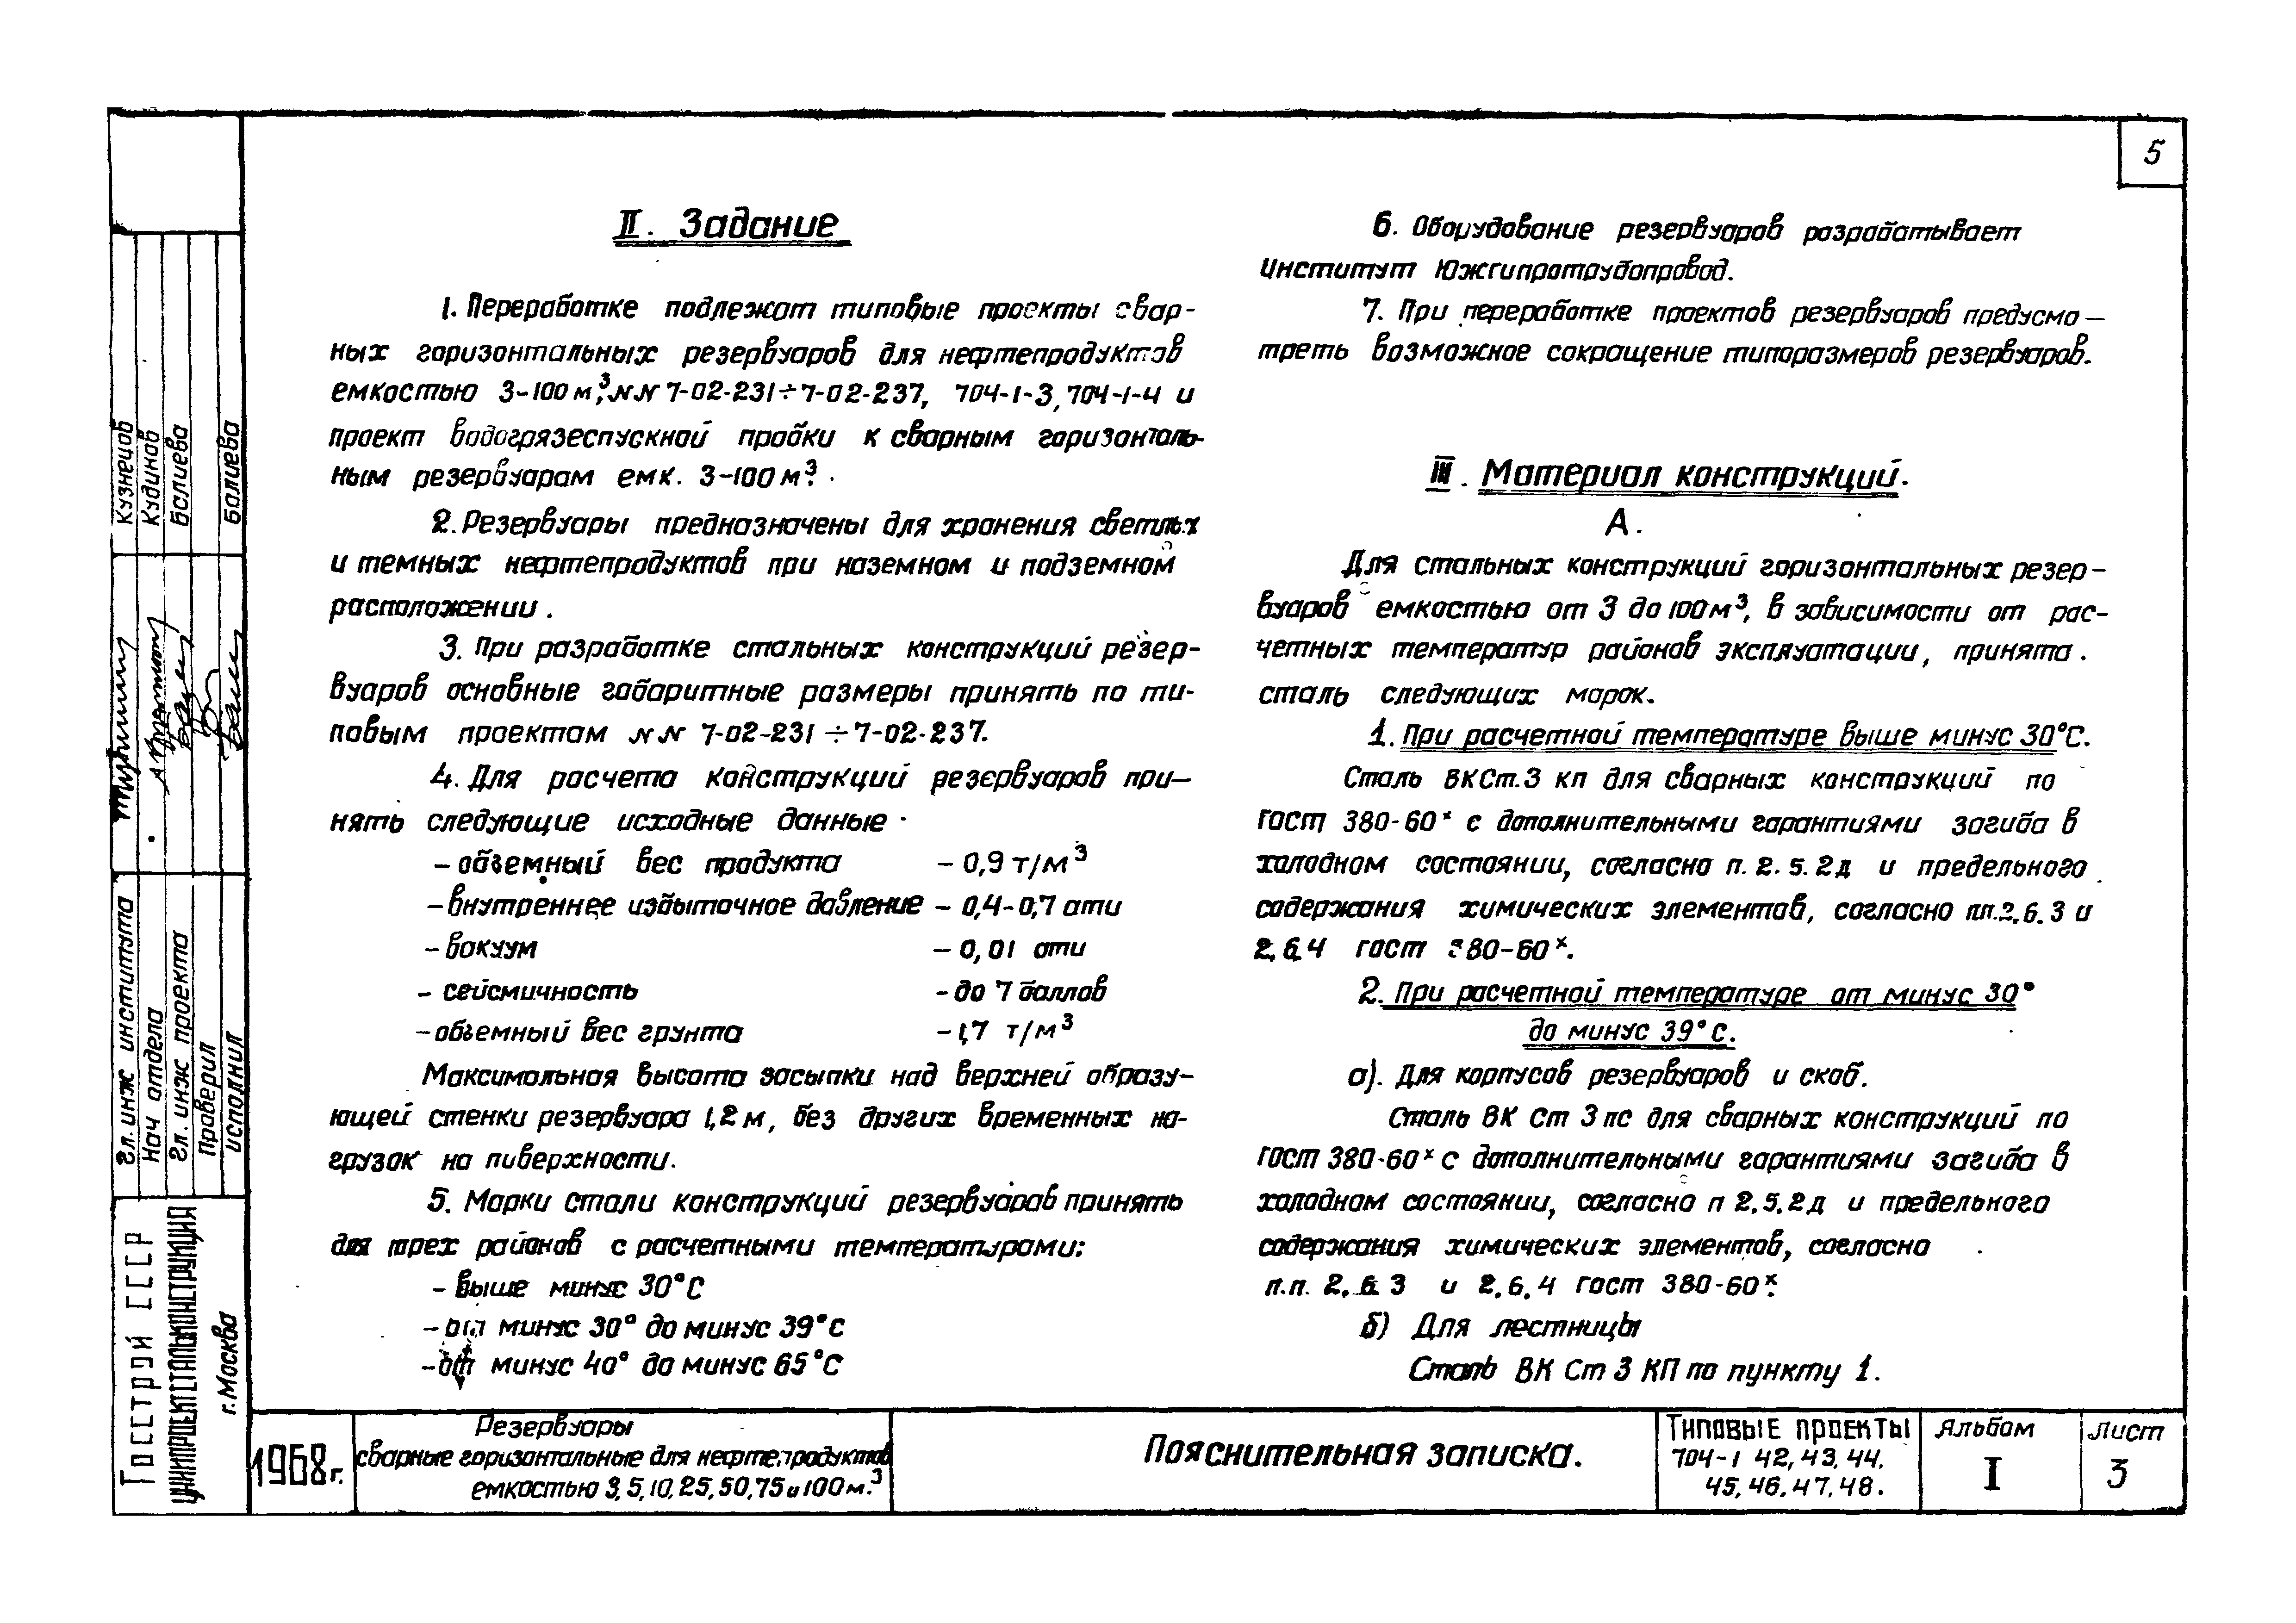 5
II. Задание
1. Переработке подлежат типовые проекты свар-
ных горизонтальных резервуаров для нефтепродуктов
емкостью 3-100 м³, №№ 7-02-231÷7-02-237, 704-1-3, 704-1-4 и
проект водогрязеспускной пробки к сварным горизонталь-
ным резервуарам емк. 3-100 м³.
2. Резервуары предназначены для хранения светлых
и темных нефтепродуктов при наземном и подземном
расположении.
3. При разработке стальных конструкций резер-
вуаров основные габаритные размеры принять по ти-
повым проектам №№ 7-02-231÷7-02-237.
4. Для расчета конструкций резервуаров при-
нять следующие исходные данные.
- объемный вес продукта - 0,9 т/м³
- внутреннее избыточное давление - 0,4-0,7 ати
- вакуум - 0,01 ати
- сейсмичность - до 7 баллов
- объемный вес грунта - 1,7 т/м³
Максимальная высота засыпки над верхней образу-
ющей стенки резервуара 1,2 м, без других временных на-
грузок на поверхности.
5. Марки стали конструкций резервуаров принять
для трех районов с расчетными температурами:
- выше минус 30°С
- от минус 30° до минус 39°С
- от минус 40° до минус 65°С
6. Оборудование резервуаров разрабатывает
институт Южгипротрубопровод.
7. При переработке проектов резервуаров предусмо-
треть возможное сокращение типоразмеров резервуаров.
III. Материал конструкций.
А.
Для стальных конструкций горизонтальных резер-
вуаров емкостью от 3 до 100 м³, в зависимости от рас-
четных температур районов эксплуатации, принята
сталь следующих марок.
1. При расчетной температуре выше минус 30°С.
Сталь ВКСт.3 кп для сварных конструкций по
гост 380-60ˣ с дополнительными гарантиями загиба в
холодном состоянии, согласно п. 2.5.2д и предельного
содержания химических элементов, согласно пп.2.6.3 и
2.6.4 гост 380-60ˣ.
2. При расчетной температуре от минус 30°
до минус 39°С.
а). Для корпусов резервуаров и скоб.
Сталь ВК Ст 3 пс для сварных конструкций по
гост 380-60ˣ с дополнительными гарантиями загиба в
холодном состоянии, согласно п 2.5.2д и предельного
содержания химических элементов, согласно
п.п. 2.6.3 и 2.6.4 гост 380-60ˣ.
б) Для лестницы
Сталь ВК Ст 3 КП по пункту 1.
гл. инж института Кузнецов
Нач отдела Кудинов
гл. инж проекта Баслиева
Проверил
исполнил Балиева
Госстрой СССР
ЦНИИПРОЕКТСТАЛЬКОНСТРУКЦИЯ
г. Москва
1968г.
Резервуары
сварные горизонтальные для нефтепродуктов
емкостью 3, 5, 10, 25, 50, 75 и 100 м.³
Пояснительная записка.
Типовые проекты
704-1 42, 43, 44,
45, 46, 47, 48.
Альбом
I
Лист
3